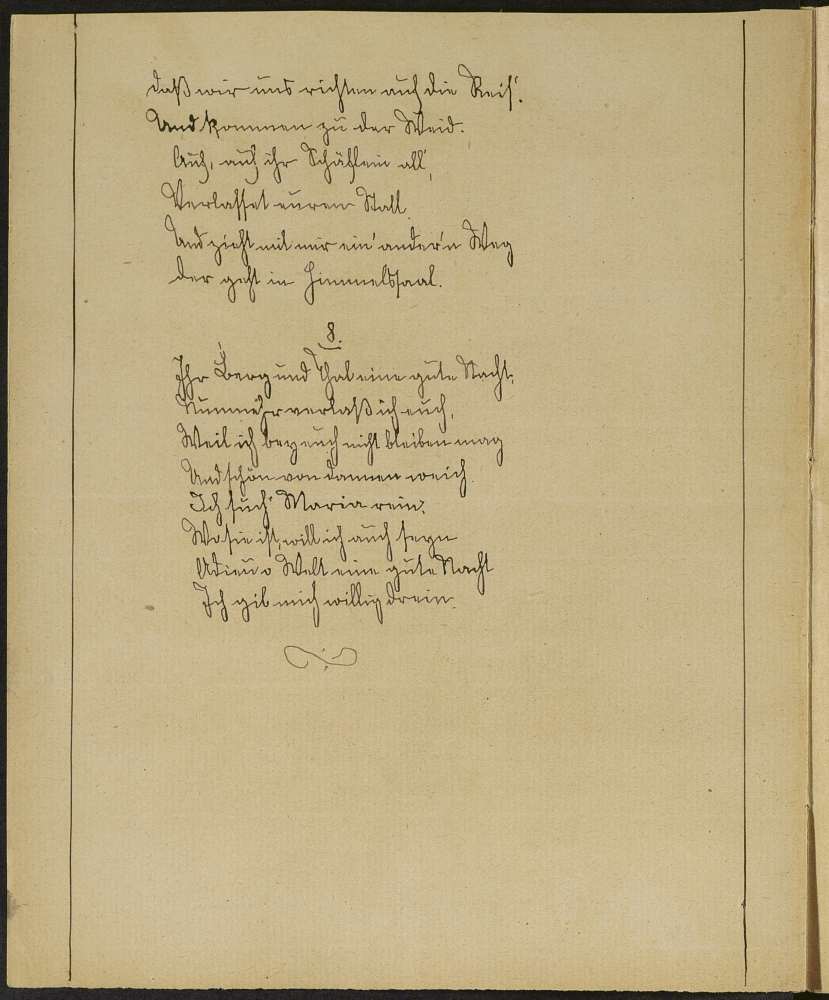 daß wir uns richten auf die Reis'.
Und kommen zu der Weid.
Auf, auf ihr Schäflein all',
Verlasset euren Stall.
Und zieht mit mir ein' ander'n Weg
der geht in Himmelssaal.
8.
Ihr Berg und Thal eine gute Nacht,
Nunmehr verlaß ich euch,
Weil ich bey euch nicht bleiben mag
Und schon von dannen weich.
Ich such' Maria rein,
Wo sie ist, will ich auch seyn
Adieu o Welt eine gute Nacht
Ich gib mich willig drein.